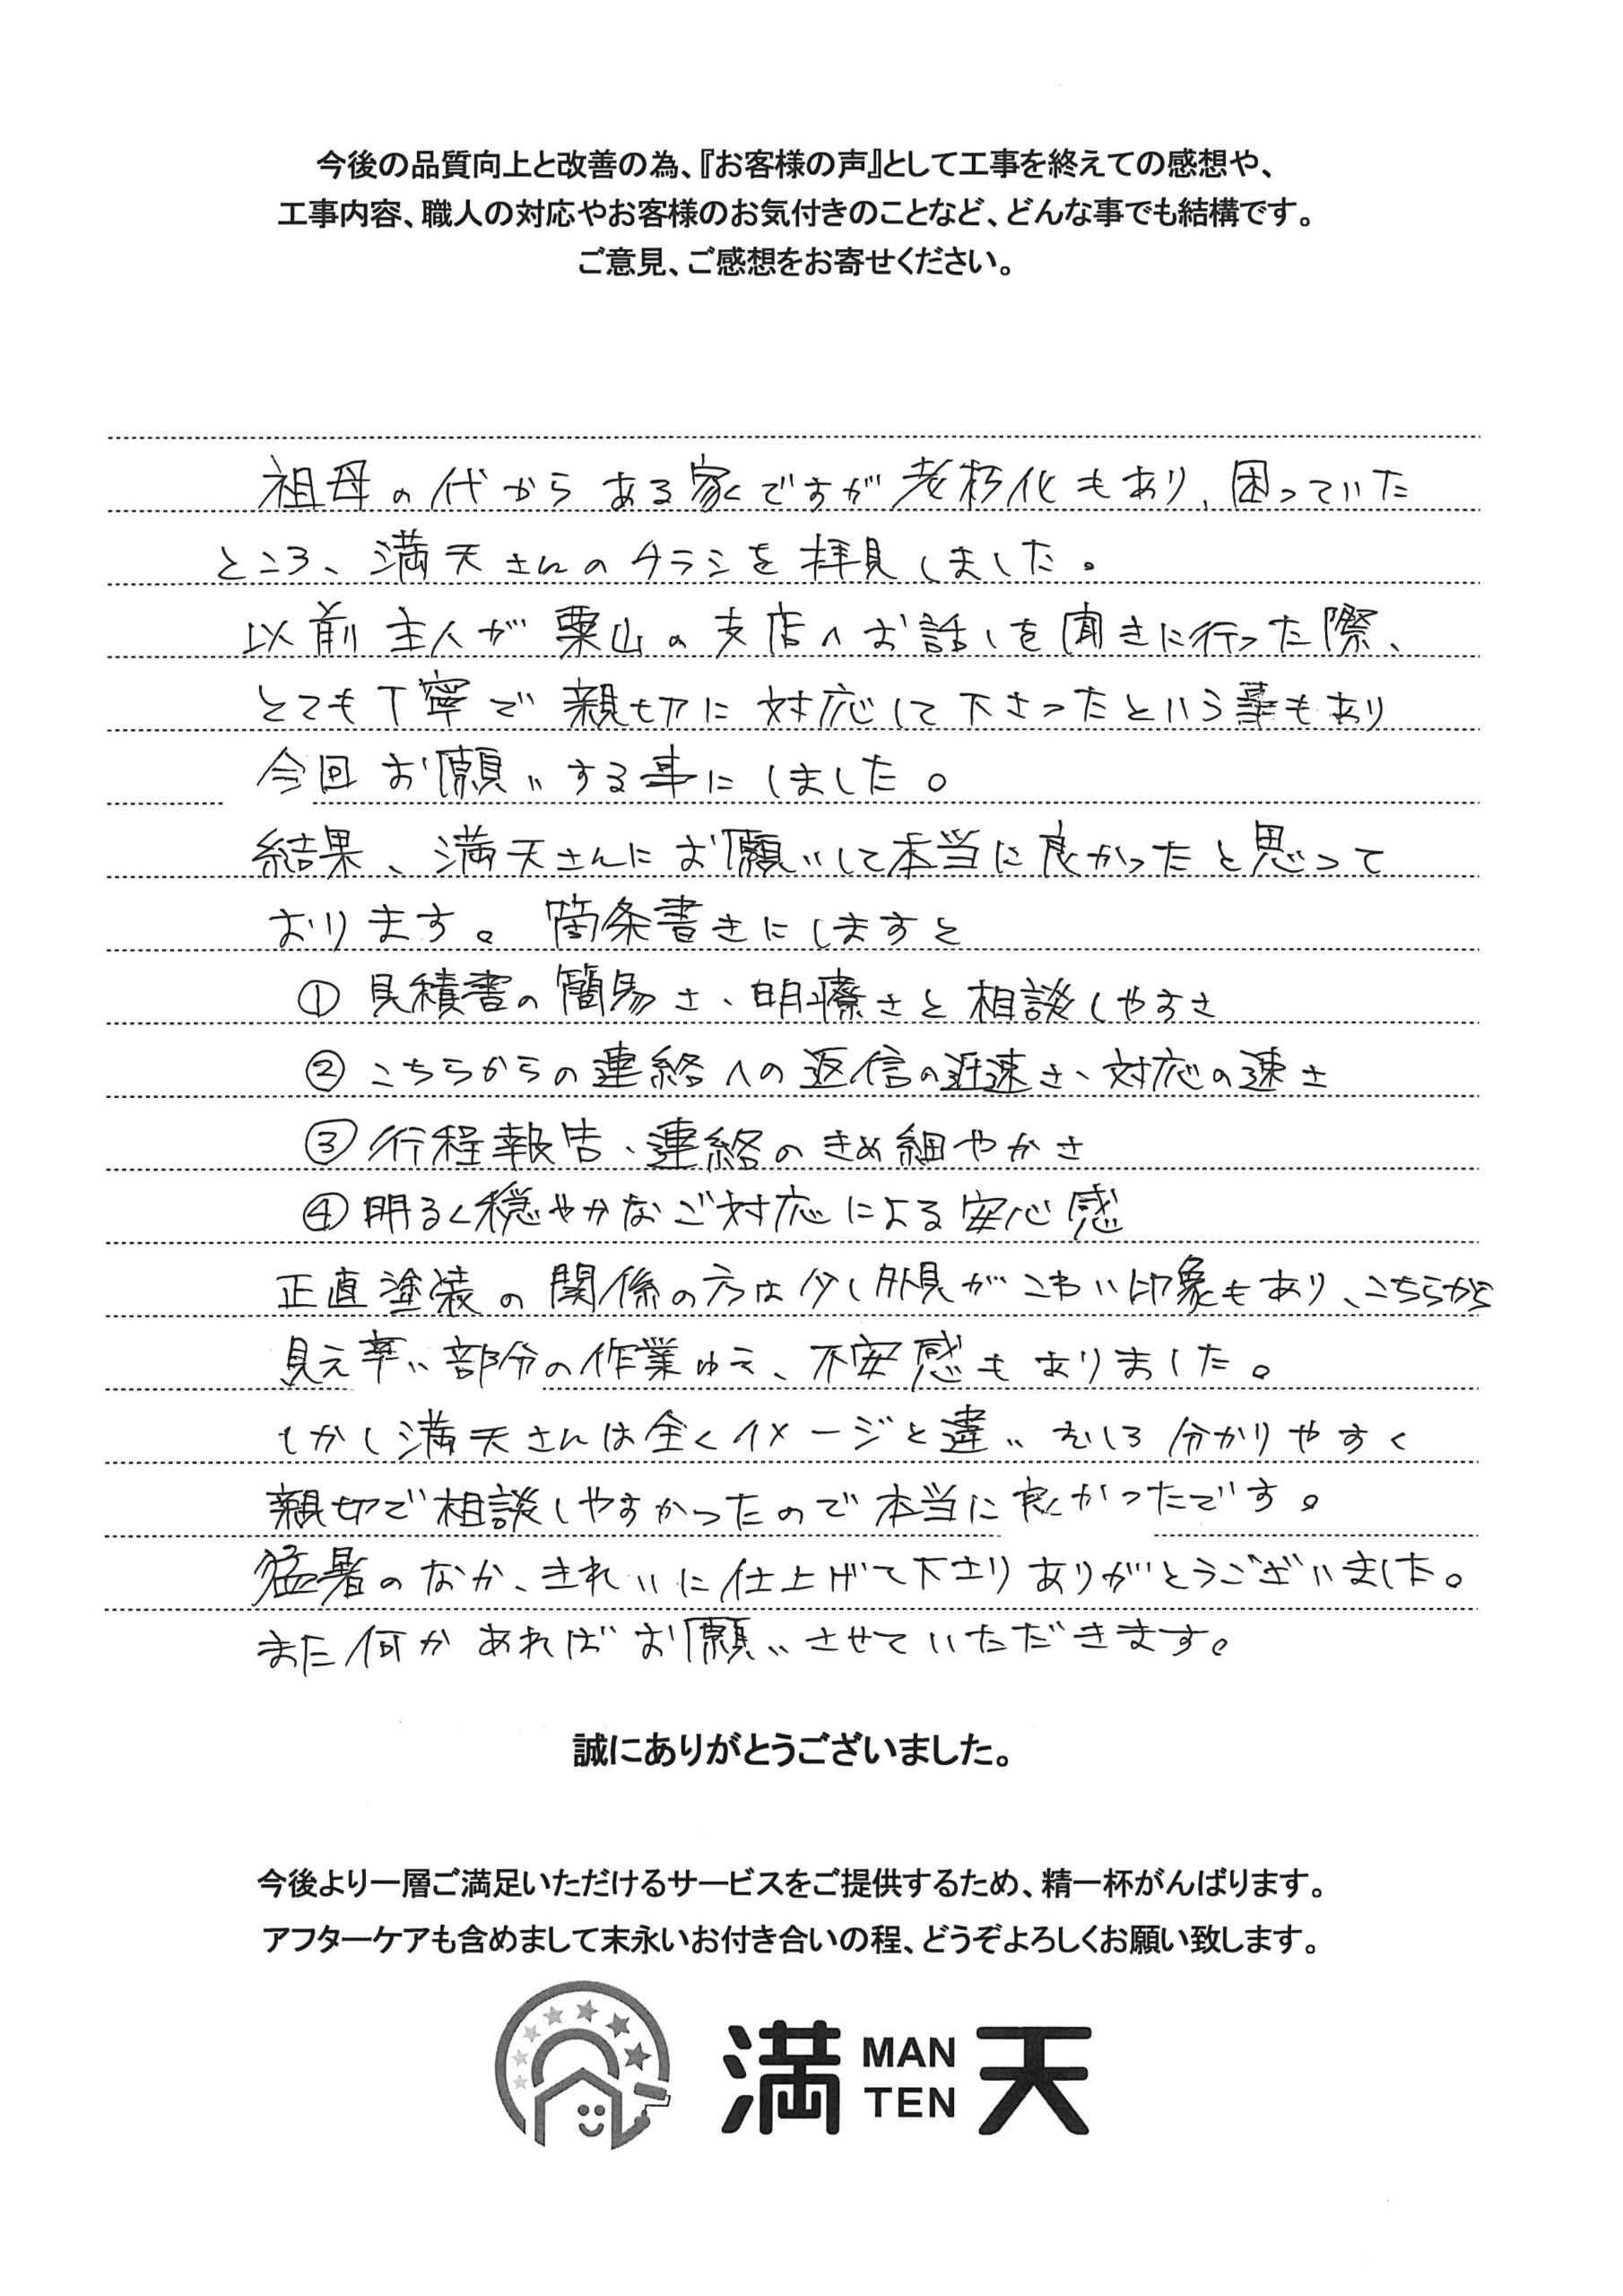 今後の品質向上と改善の為、『お客様の声』として工事を終えての感想や、
工事内容、職人の対応やお客様のお気付きのことなど、どんな事でも結構です。
ご意見、ご感想をお寄せください。
祖母の代からある家ですが老朽化もあり、困っていた
ところ、満天さんのチラシを拝見しました。
以前主人が栗山の支店へお話しを聞きに行った際、
とても丁寧で親切に対応して下さったという事もあり
今回お願いする事にしました。
結果、満天さんにお願いして本当に良かったと思って
おります。箇条書きにしますと
① 見積書の簡易さ、明瞭さと相談しやすさ
② こちらからの連絡への返信の迅速さ、対応の速さ
③ 行程報告、連絡のきめ細やかさ
④ 明るく穏やかなご対応による安心感
正直塗装の関係の方は少し外見がこわい印象もあり、こちらから
見え辛い部分の作業ゆえ、不安感もありました。
しかし満天さんは全くイメージと違い、むしろ分かりやすく
親切で相談しやすかったので本当に良かったです。
猛暑のなか、きれいに仕上げて下さりありがとうございました。
また何かあればお願いさせていただきます。
誠にありがとうございました。
今後より一層ご満足いただけるサービスをご提供するため、精一杯がんばります。
アフターケアも含めまして末永いお付き合いの程、どうぞよろしくお願い致します。
満 MAN TEN 天